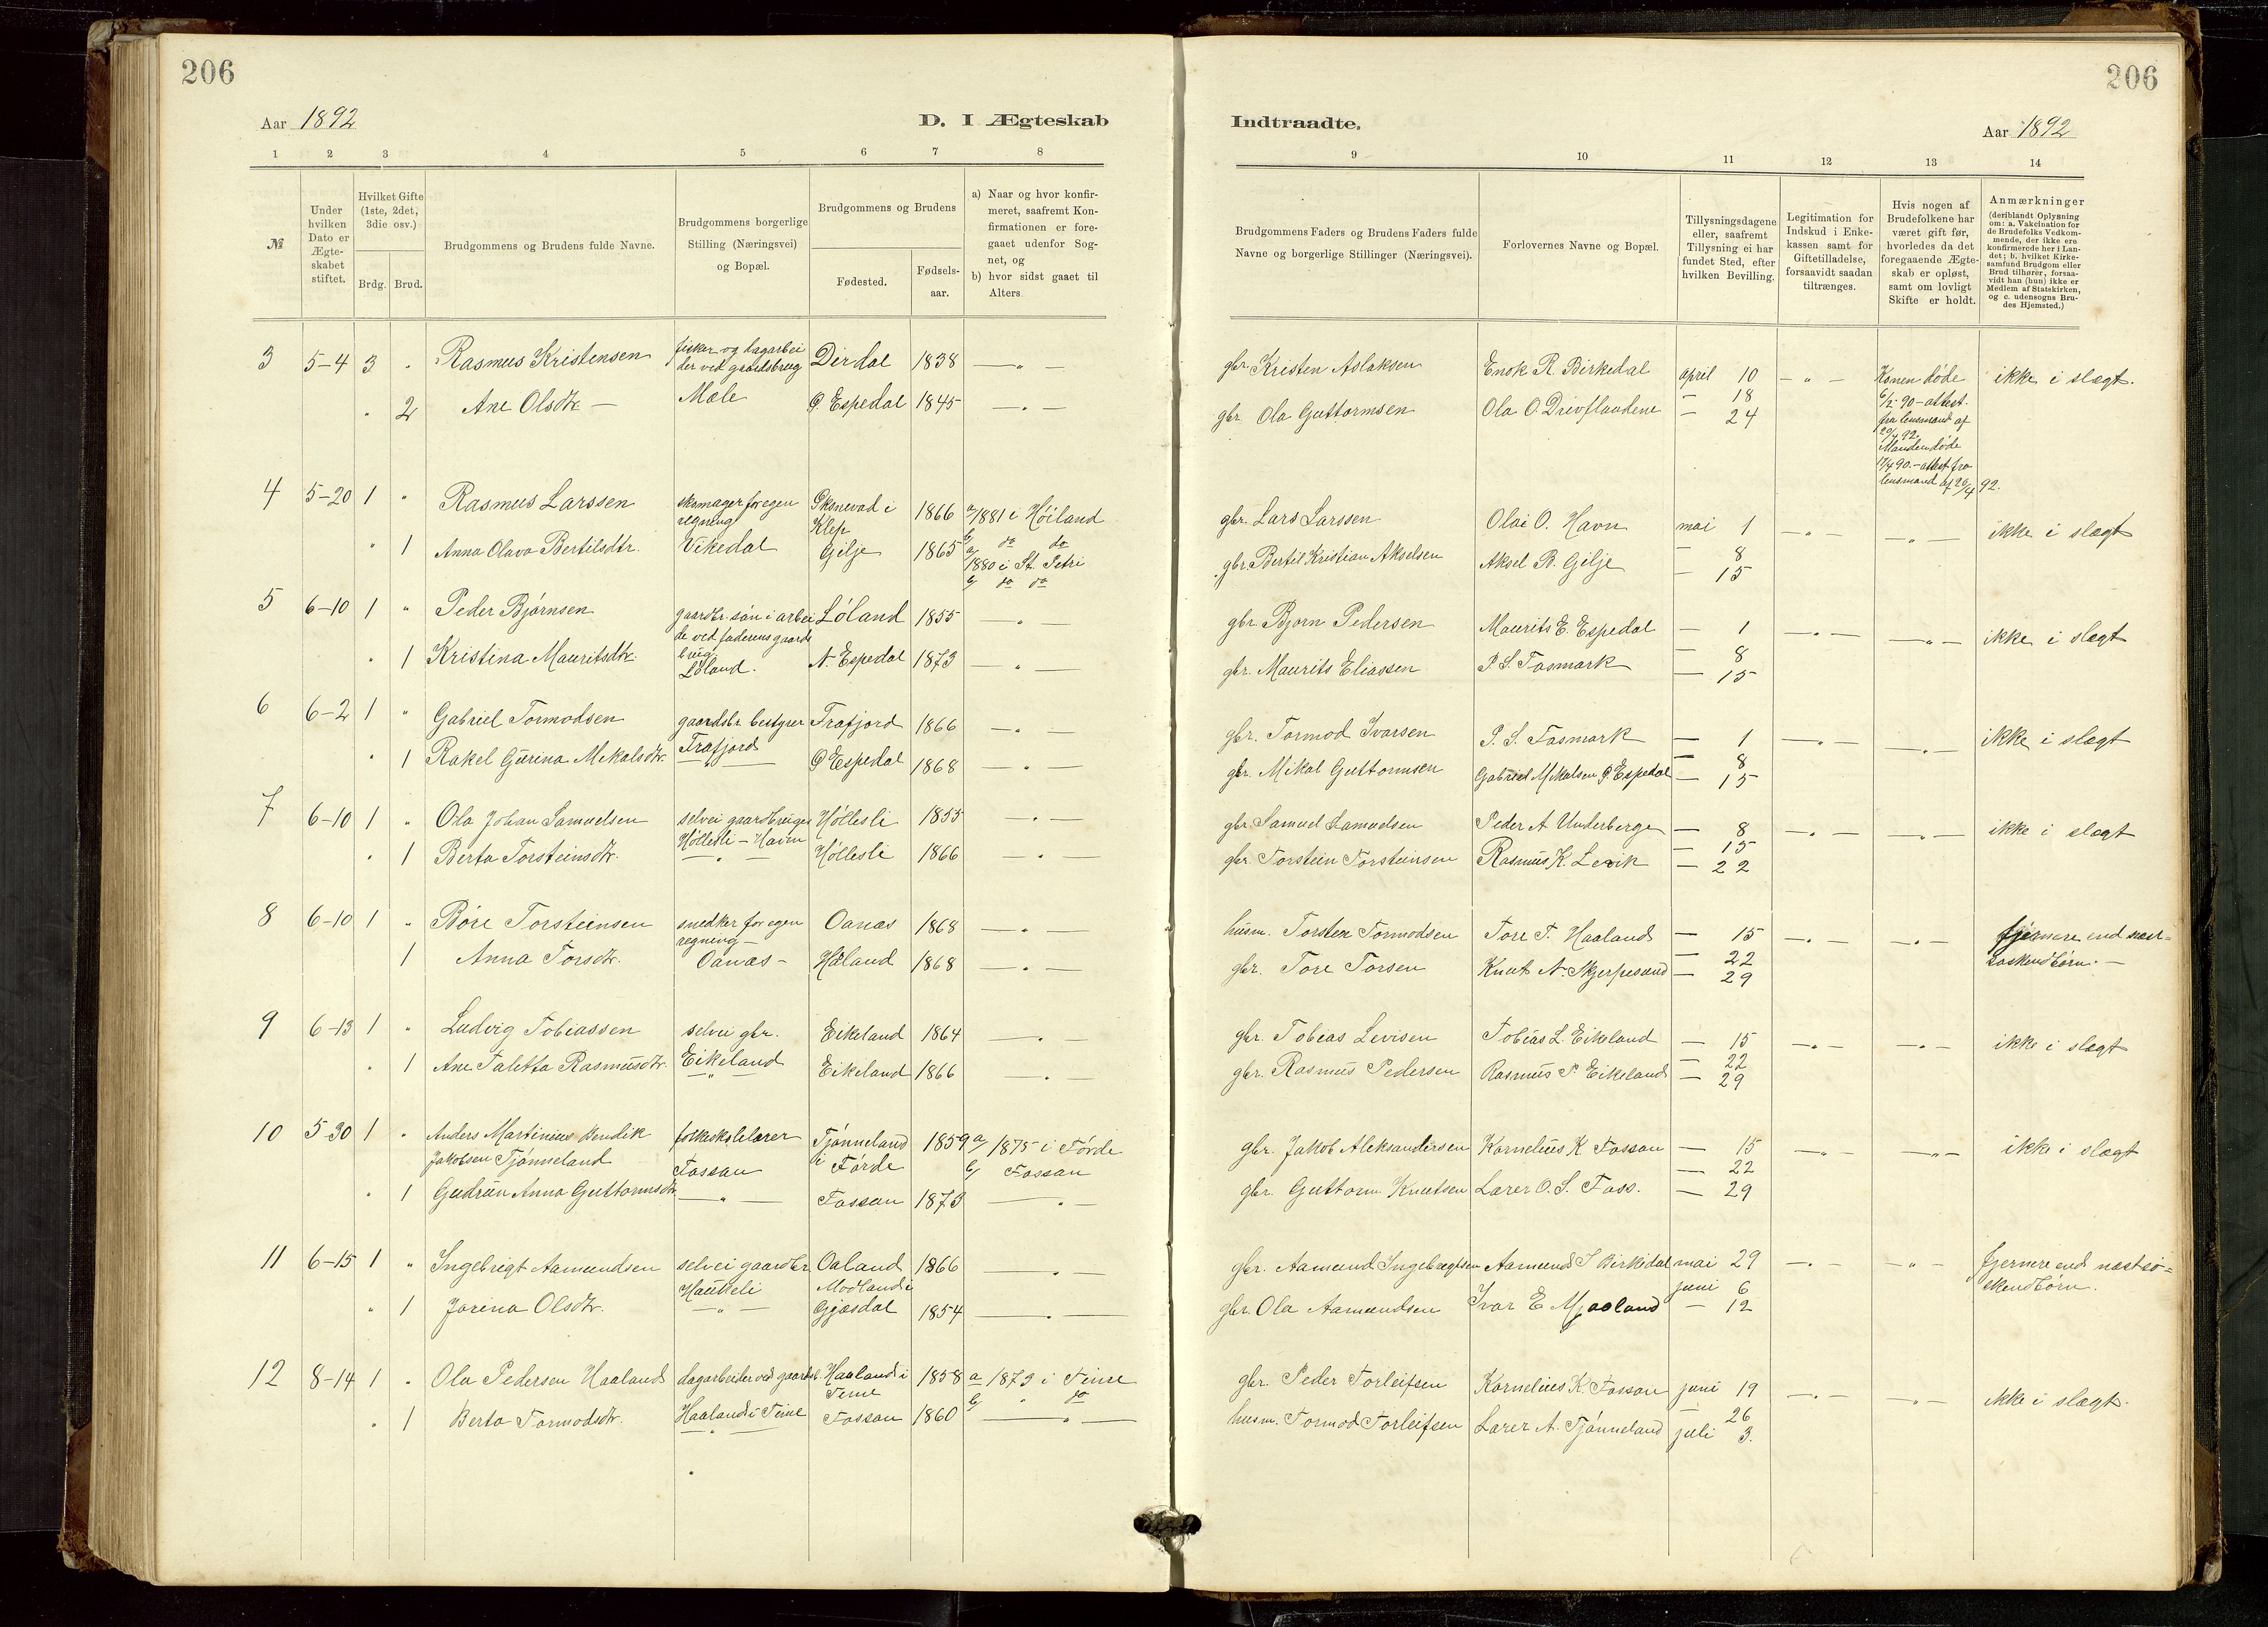 206
206
Aar 1892
D. I Ægteskab
Indtraadte.
Aar 1892
1 2 3 4 5 6 7 8
9 10 11 12 13 14
№
Under hvilken Dato er Ægte-skabet stiftet.
Hvilket Gifte (1ste, 2det, 3die osv.)
Brdg. Brud.
Brudgommens og Brudens fulde Navne.
Brudgommens borgerlige Stilling (Næringsvei) og Bopæl.
Brudgommens og Brudens
Fødested.
Fødsels-aar.
a) Naar og hvor konfir-meret, saafremt Kon-firmationen er fore-gaaet udenfor Sog-net, og
b) hvor sidst gaaet til Alters.
Brudgommens Faders og Brudens Faders fulde Navne og borgerlige Stillinger (Næringsvei).
Forlovernes Navne og Bopæl.
Tillysningsdagene eller, saafremt Tillysning ei har fundet Sted, efter hvilken Bevilling.
Legitimation for Indskud i Enke-kassen samt for Giftetilladelse, forsaavidt saadan tiltrænges.
Hvis nogen af Brudefolkene har været gift før, hvorledes da det foregaaende Ægte-skab er opløst, samt om lovligt Skifte er holdt.
Anmærkninger
(deriblandt Oplysning om: a. Vakcination for de Brudefolks Vedkom-mende, der ikke ere konfirmerede her i Lan-det; b. hvilket Kirke-samfund Brudgom eller Brud tilhører, forsaa-vidt han (hun) ikke er Medlem af Statskirken, og c. udensogns Bru-des Hjemsted.)
3 5-4 3 " Rasmus Kristensen fisker og dagarbei der ved gaardsbrug Dirdal 1838 — " — gbr. Kristen Aslaksen Enok R. Birkedal april 10 — " — Konen døde 6/2 90 - attest fra lensmand af 20/4 92. ikke i slægt.
" 2 Ane Olsdtr — Mæle Ø. Espedal 1845 — " — gbr. Ola Guttormsen Ola O. Drivflaadene — 18 — 24 Manden døde 17/4 90. - attest fra lensmand af 20/4 92.
4 5-20 1 " Rasmus Larssen skomager for egen regning Klep 1866 a/ 1881 i Höiland b/ do do gbr. Lars Larssen Olai O. Havn mai 1 — " — — " — ikke i slægt
" 1 Anna Olava Bertilsdtr. Vikedal Gilje 1865 a/ 1880 i St. Petri b/ do do gbr. Bertil Kristian Akselsen Aksel B. Gilje — 8 — 15
5 6-10 1 " Peder Bjørnsen gaardbr. søn i arbei de ved faderens gaards brug Löland 1855 — " — gbr. Bjørn Pedersen Maurits E. Espedal — 1 — " — — " — ikke i slægt
" 1 Kristina Mauritsdtr. Löland. N. Espedal 1873 — " — gbr. Maurits Eliassen P. S. Fosmark — 8 — 15
6 6-2 1 " Gabriel Tormodsen gaardsbr. bestyrer Frafjord 1866 — " — gbr. Tormod Ivarsen P. S. Fosmark — 1 — " — — " — ikke i slægt
" 1 Rakel Gurina Mikalsdtr. Frafjord Ø Espedal 1868 — " — gbr. Mikal Guttormsen Gabriel Mikalsen Ø. Espedal — 8 — 15
7 6-10 1 " Ola Johan Samuelsen selvei gaardbruger Höllesli 1855 — " — gbr. Samuel Samuelsen Peder A Underberge — 8 — " — — " — ikke i slægt
" 1 Berta Torsteinsdtr. Höllesli - Havn Höllesli 1866 — " — gbr. Torstein Torsteinsen Rasmus K. Levik — 15 — 22
8 6-10 1 " Böre Torsteinsen snedker for egen regning — Oanæs 1868 — " — husm. Torsten Tormodsen Tore T. Haaland — 15 — " — — " — fjernere end næst= søskendbörn. —
1 Anna Torsdtr. Oanæs - Håland 1868 — " — gbr. Tore Torsen Knut N. Skjerpesand — 22 — 29
9 6-13 1 " Ludvig Tobiassen selvei gbr. Eikeland 1864 — " — gbr. Tobias Levisen Tobias L. Eikeland — 15 — " — — " — ikke i slægt
" 1 Ane Taletta Rasmusdtr. Eikeland Eikeland 1866 — " — gbr. Rasmus Pedersen Rasmus P. Eikeland — 22 — 29
10 5-30 1 " Anders Martinius Bendik Jakobsen Tjönneland folkeskolelærer Fossan Tjönneland i Förde 1859 a/ 1875 i Förde b/ Fossan gbr. Jakob Aleksandersen Kornelius K Fossan — 15 — " — — " — ikke i slægt
" 1 Gudrun Anna Guttormsdtr. — " — Fossan 1873 — " — gbr. Guttorm Knutsen Lærer O. S. Foss. — 22 — 29
11 6-15 1 " Ingebrigt Aamundsen selvei gaardbr Haukeli Oaland 1866 — " — gbr. Aamund Ingebregtsen Aamund I Birkedal mai 29 — " — — " — fjernere end næstsö= skendbörn.
" 1 Jorina Olsdtr. — " — Modland i Gjæsdal 1854 — " — gbr. Ola Aamundsen Ivar E Mjaaland juni 6 — 12
12 8-14 1 " Ola Pedersen Haaland dagarbeider ved gaardsb. Haaland i Time 1858 a 1873 i Time b/ " do gbr. Peder Torleifsen Kornelius K. Fossan juni 19 — " — — " — ikke i slægt.
" 1 Berta Tormodsdtr. Haaland i Time Fossan 1860 — " — husm. Tormod Torleifsen Lærer A. Tjönneland — 26 juli 3.